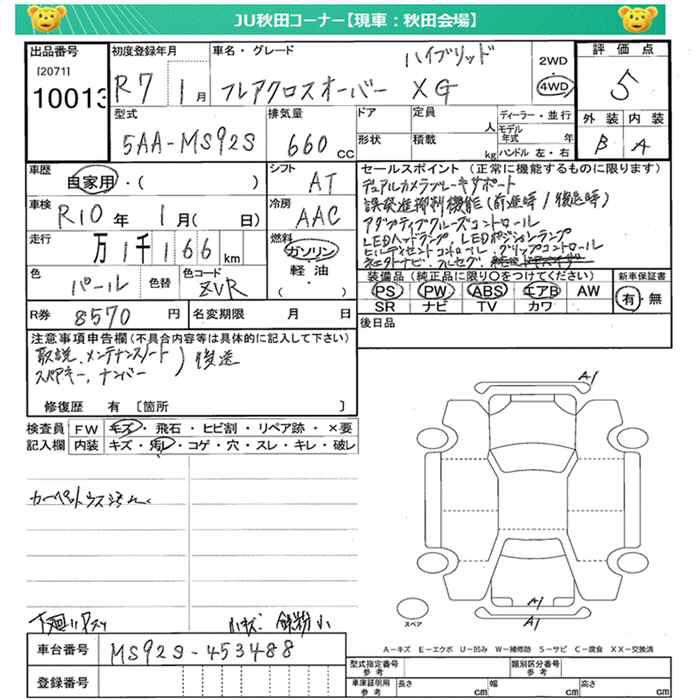 JU秋田コーナー【現車：秋田会場】
出品番号
[2071]
10013
初度登録年月
R7 1月
車名・グレード
ハイブリッド
フレアクロスオーバー XG
2WD
4WD
評価点
5
外装 内装
B A
型式
5AA-MS92S
排気量
660 CC
ドア
定員
人
形状
積載
kg
ディーラー・並行
モデル年式 年
ハンドル 左・右
車歴
自家用・( )
シフト
AT
車検
R10年 1月( 日)
冷房
AAC
走行
万1千166km
燃料
ガソリン
軽油
・( )
色
パール
色替
色コード
ZVR
R券
8570円
名変期限 月 日
セールスポイント (正常に機能するものに限ります)
デュアルカメラブレーキサポート
誤発進抑制機能(前進時/後退時)
アダプティブクルーズコントロール
LEDヘッドランプ LEDポジションランプ
ヒルディセントコントロール グリップコントロール
フルセグ
装備品(純正品に限り○をつけてください)
PS PW ABS エアB AW
SR ナビ TV カワ
新車保証書
有・無
後日品
注意事項申告欄(不具合内容等は具体的に記入して下さい)
取説、メンテナンスノート
スペアキー、ナンバー
)後送
修復歴 有 [箇所 ]
検査員記入欄
FW キズ・飛石・ヒビ割・リペア跡・×要
内装 キズ・汚レ・コゲ・穴・スレ・キレ・破レ
カーペットウス汚レ
下廻り
小キズ 鉄粉小
車台番号
MS92S-453488
登録番号
A1
A1
A1
スペア
A-キズ E-エクボ U-凹み W-補修跡 S-サビ C-腐食 XX-交換済
型式指定番号
参考
類別区分番号
参考
車庫証明用
参考
長さ cm
幅 cm
高さ cm